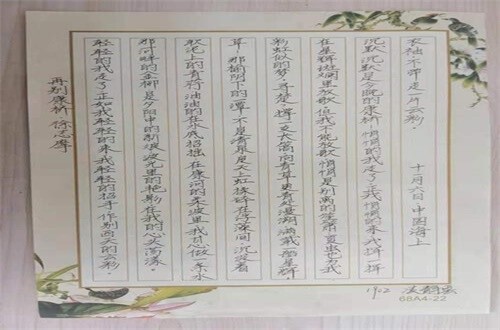 再别康桥 徐志摩
轻轻的我走了正如我轻轻的来我轻轻的招手作别西天的云彩.
那河畔的金柳是夕阳中的新娘波光里的艳影在我的心头荡漾
软泥上的青荇油油的在水底招摇在康河的柔波里我甘心做一条水
草那榆阴下的潭不是清泉是天上虹揉碎在浮藻间沉淀着
彩虹似的梦寻梦撑支长篙向青草更青处漫溯满载一船星辉
在星辉斑斓里放歌但我不能放歌悄悄是别离的笙箫夏虫也为我
沉默沉默是今晚的康桥悄悄的我走了正如我悄悄的来我挥一挥
衣袖不带走一片云彩. 十一月六日中国海上
1902
68A4-22